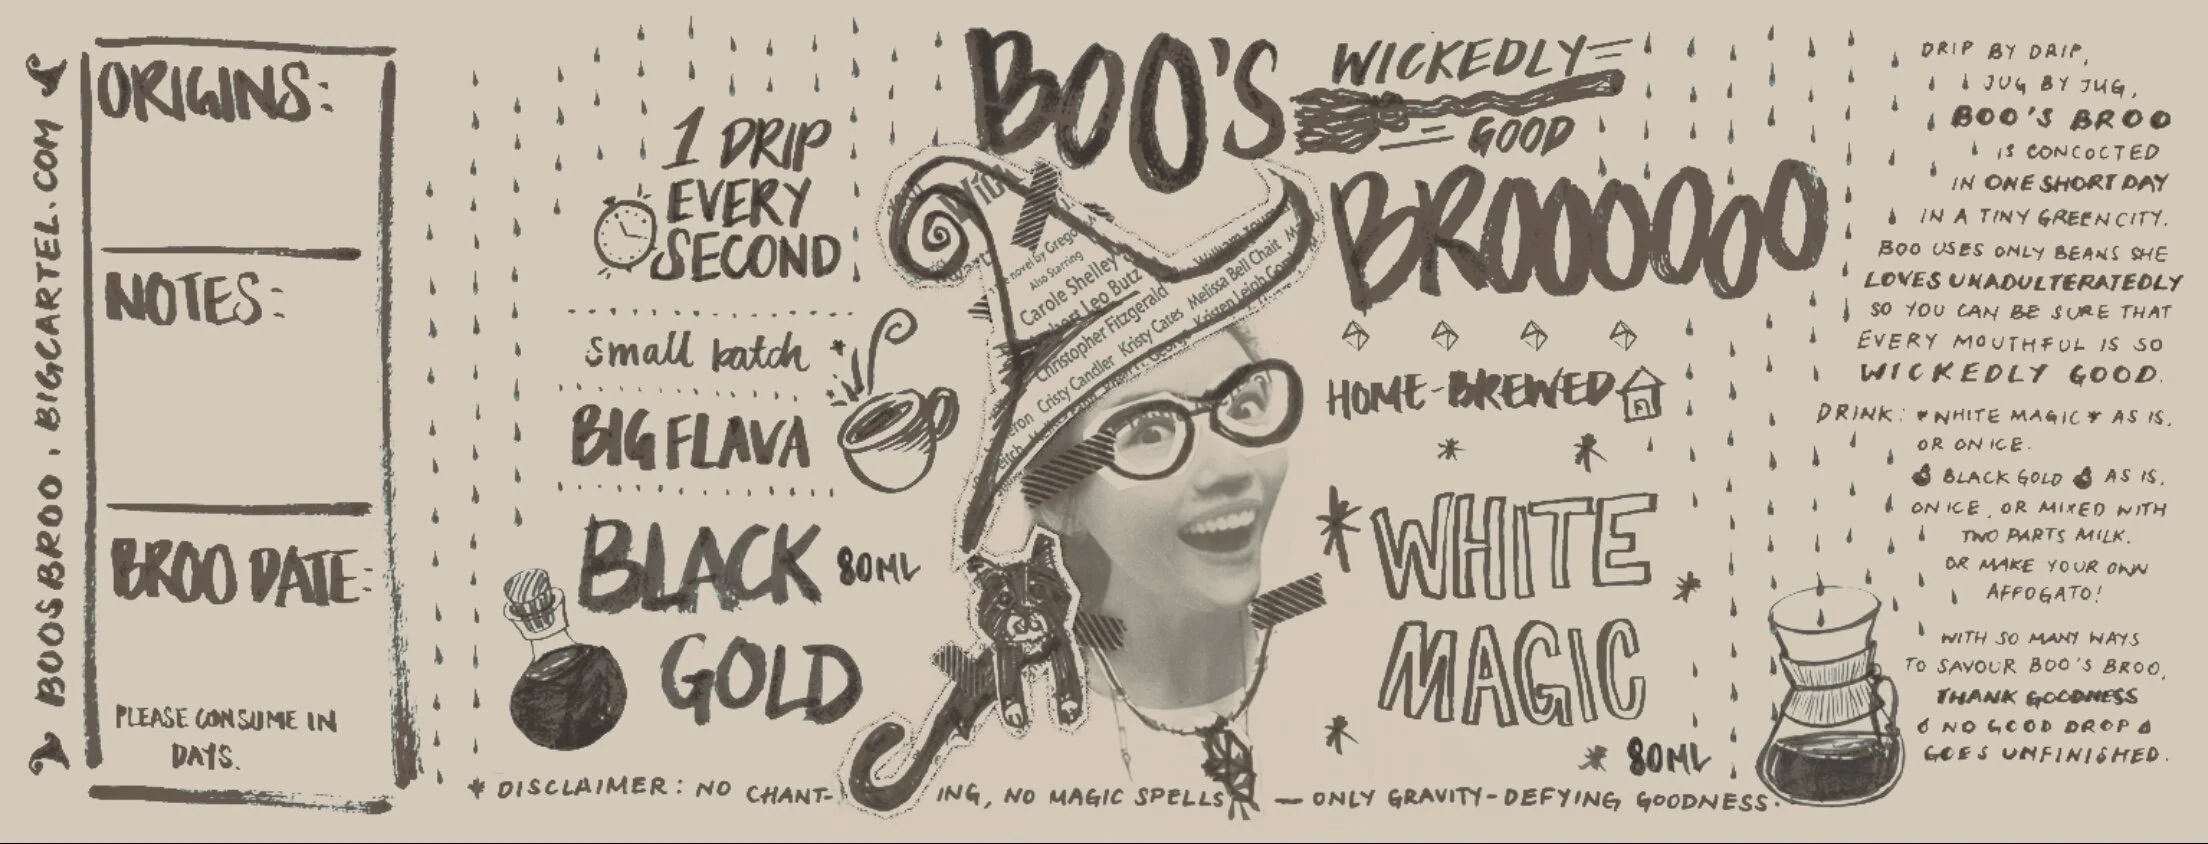 BOOSBROO.BIGCARTEL.COM
ORIGINS:
NOTES:
BROO DATE:
PLEASE CONSUME IN
DAYS.
1 DRIP
EVERY
SECOND
small batch
BIG FLAVA
BLACK 80ML
GOLD
BOO'S
WICKEDLY
GOOD
BROOOOOO
a novel by Grego
Also Starring
Carole Shelley
Leo Butz
Christopher Fitzgerald
Cristy Candler Kristy Cates Melissa Bell Chait
Kristen Leigh
HOME-BREWED
WHITE
MAGIC
80ML
* DISCLAIMER: NO CHANT-ING, NO MAGIC SPELLS — ONLY GRAVITY-DEFYING GOODNESS.
DRIP BY DRIP,
JUG BY JUG,
BOO'S BROO
IS CONCOCTED
IN ONE SHORT DAY
IN A TINY GREEN CITY.
BOO USES ONLY BEANS SHE
LOVES UNADULTERATEDLY
SO YOU CAN BE SURE THAT
EVERY MOUTHFUL IS SO
WICKEDLY GOOD.
DRINK: *WHITE MAGIC* AS IS,
OR ON ICE.
BLACK GOLD AS IS,
ON ICE, OR MIXED WITH
TWO PARTS MILK.
OR MAKE YOUR OWN
AFFOGATO!
WITH SO MANY WAYS
TO SAVOUR BOO'S BROO,
THANK GOODNESS
NO GOOD DROP
GOES UNFINISHED.